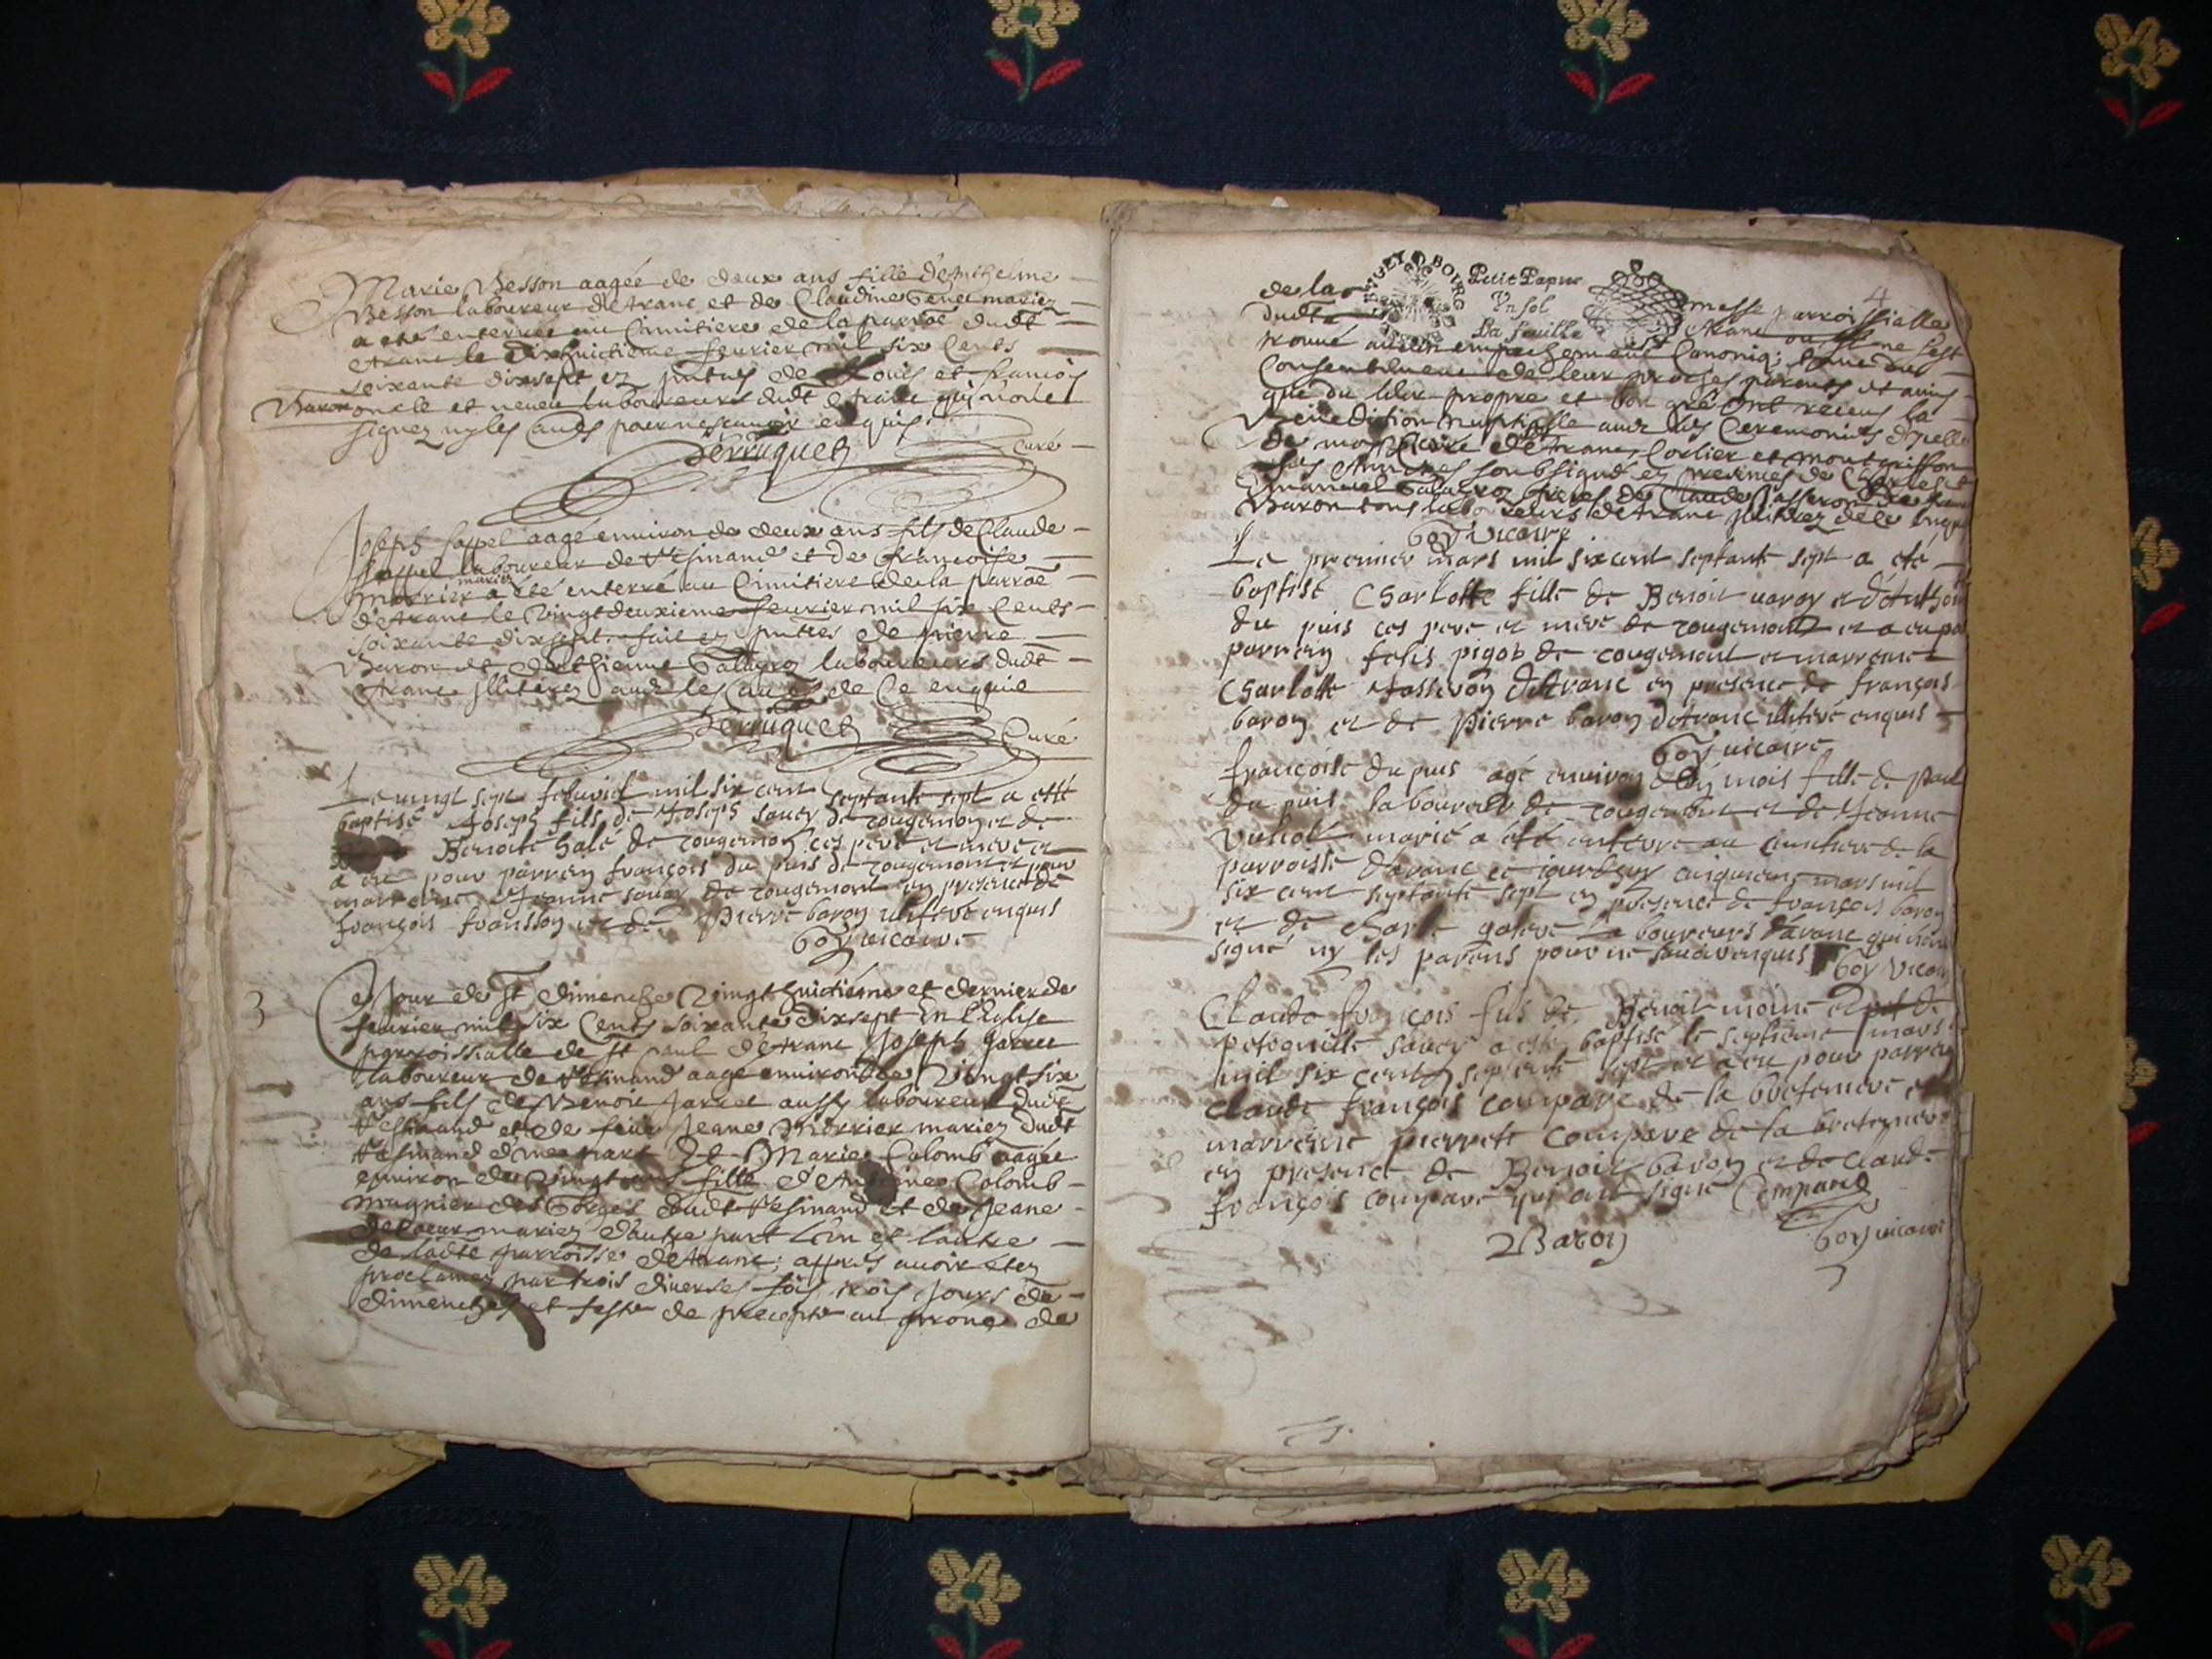 Marie Besson aagée de deux ans fille d'Enthelme
Besson laboureur détranc et de Claudine mariez
a été enterrée au Cimitiere de la parroē dudt
etranc le dixhuictieme feurier mil six Cents
soixante dixsept ez pntes de Louis et francois
Baron oncle et neueu laboureurs dudt etranc qui nont
signez ny les pour ne scauoir enquis
Perruquet curé
Joseph aagé enuiron de deux ans fils de Claude
laboureur de Vesinand et de francoise
Morrier mariez a été enterré au Cimitiere de la parroē
détranc le Vingtdeuxieme feurier mil six Cents
soixante dixsept fait ez pntes de pierre
Baron et d'Ethienne laboureurs dudt
etranc Jlliterez de Ce enquis
Perruquet Curé
Le vingt sept feburié mil six cent septante sept a etté
baptisé Joseph fils de Joseph sauey de rougemon et de
Benoite de rougemon ces pere et mere et
a eu pour parrein françois du puis de rougemont et pour
marreine Jeanne sauey de rougemont en presence de
françois fransson et de Pierre baron illiteré enquis
Goy uicaire
3
Ce Jour de St dimenche Vingthuictiéme et dernier de
feurier mil six Cents soixante dixsept En l'Eglise
parroissialle de st paul d'étranc Joseph Jarcet
laboureur de Vesinand aagé enuiron de Vingt six
ans fils de Benoit Jarcet aussy laboureur dudt
Vesinand et de feüe Jeane Morrier mariez dudt
Vesinand d'une part Et Marie Colomb aagée
enuiron de Vingt ans fille d'Antoine Colomb
mugnier des Gorges dudt Vesinand et de Jeane
mariez d'autre part L'un et l'autre
de ladte parroisse détranc; appres auoir étez
proclamez par trois diuerses fois trois Jours de
dimenches et feste de precepte au prone de
4
BVGEY BOVRG
Petit Papier
Vn sol
La feuille
de la messe parroissialle
dudt etranc ou il ne s'est
trouué aucun empechement Canoniq; tant du
Consentement de leur proches parents et amis
que du leur propre et bon gré ont receus la
Benediction nuptialle auec les Ceremonies d'jcelle
de moy Curé détranc, Corlier et montgriffon
soubsigné ez presences de Charles et
Emanuel freres de Claude Jasseron
Baron tous laboureurs détranc Jlliterez de Ce enquis
Goy uicaire
Le premier mars mil six cent septante sept a eté
baptisé Charlotte fille de Benoit uaroy et
du puis ces pere et mere de rougemont et a eu
parrein felis pigot de rougemont et marreine
Charlotte Jasseron détranc en presence de françois
baron et de pierre baron détranc illiteré enquis
Goy uicaire
françoise du puis agé enuiron mois fille de Paul
du puis laboureur de rougemont et de Jeanne
marié a eté enterré au cimitiere de la
parroisse détranc ce jourdhuy cinquiem mars mil
six cent septante sept en presence de françois baron
et de charle laboureurs détranc qui nont
signé ny les parens pour ne scauoir enquis Goy uicaire
Claude françois fils de Benoit moine et de
sauey a eté baptisé le septieme mars
mil six cent septente sept et a eu pour parrein
claude françois compare de la breteniere et
marreine pierrette compare de la breteniere
en presence de Benoit baron et de claude
françois compare qui ont signé Compare
Baron Goy uicaire